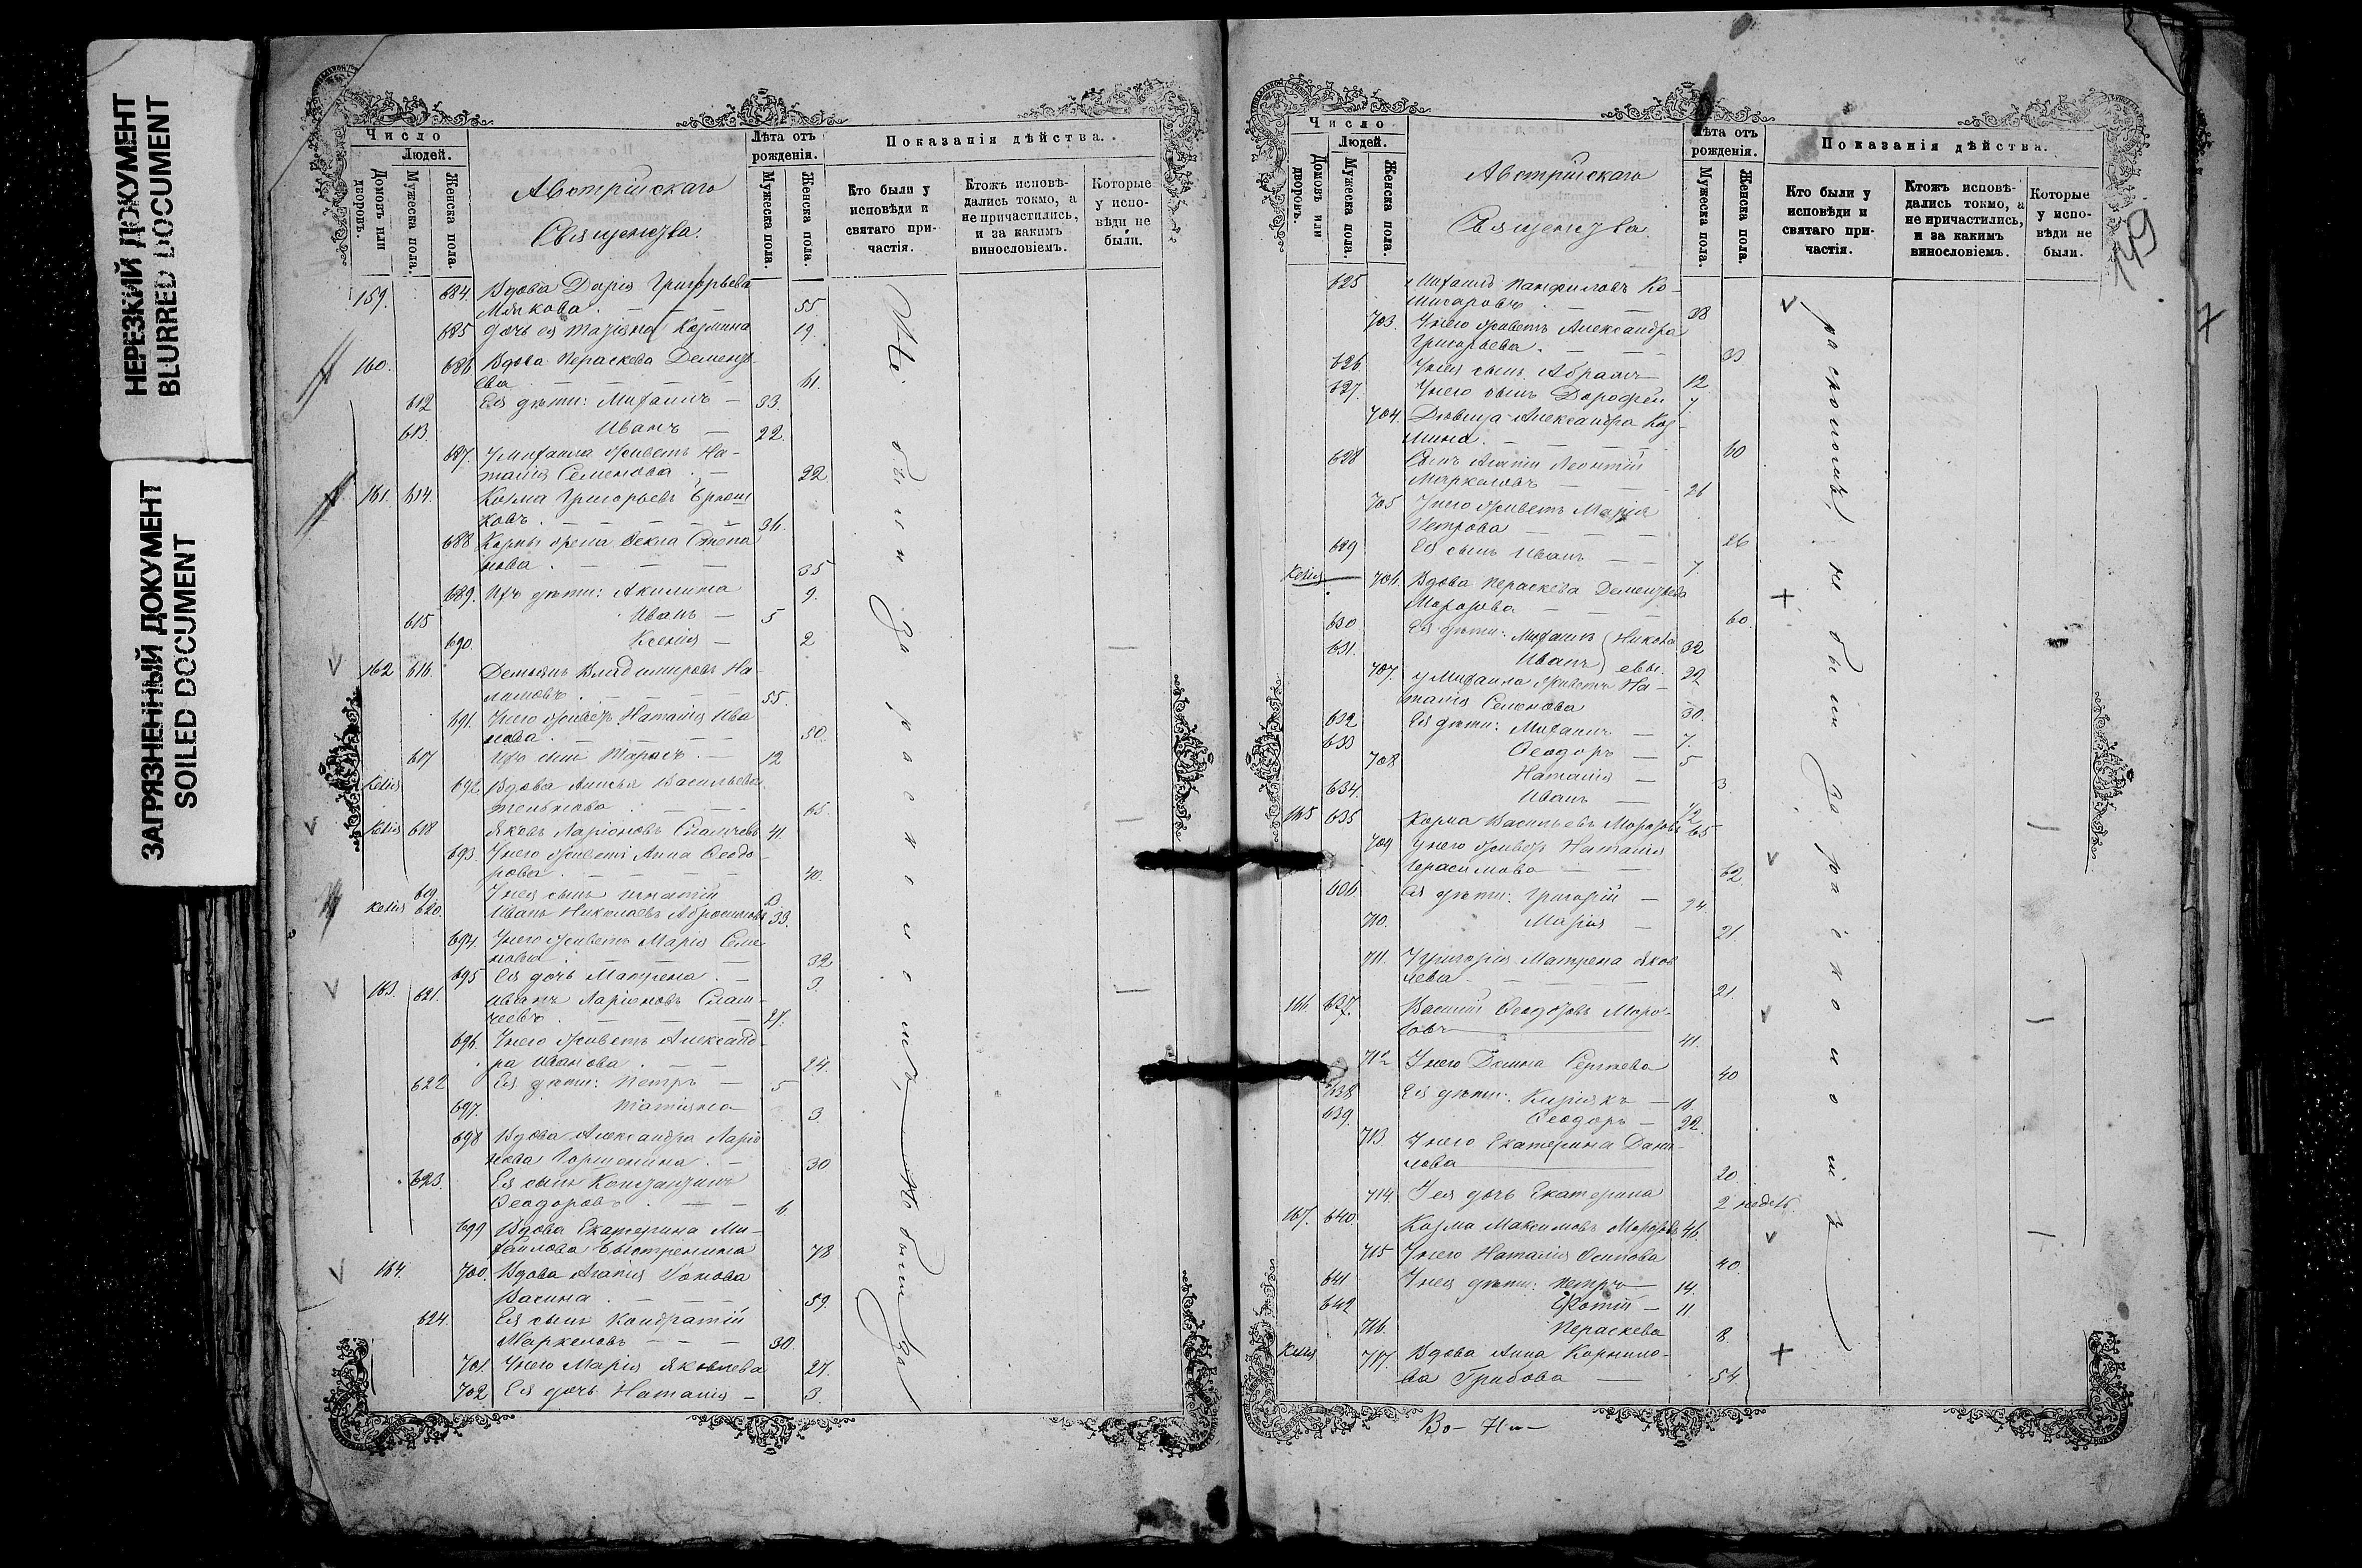 НЕРЕЗКИЙ ДОКУМЕНТ
BLURRED DOCUMENT
ЗАГРЯЗНЕННЫЙ ДОКУМЕНТ
SOILED DOCUMENT
Число
Людей.
Домовъ или дворовъ.
Мужеска пола.
Женска пола.
Австрійскаго
Священства.
Лѣта отъ рожденія.
Мужеска пола.
Женска пола.
Показанія дѣйства.
Кто были у исповѣди и святаго причастія.
Ктожъ исповѣдались токмо, а не причастились, и за какимъ винословіемъ.
Которые у исповѣди не были.
159. 684. Вдова Дарія Григорьева
55.
685 дочь ея Татіяна Козмина 19.
160. 686 Вдова Параскева Демент
ева 61.
612 Ея дѣти: Михаилъ 33.
613. Иванъ 22.
687. У Михаила живетъ На
талія Семенова 22
161. 614. Козма Григорьевъ
ковъ 36.
688 Козмы жена Ѳекла Степа
нова 35
689. Ихъ дѣти: Акилина 9.
615 Иванъ 5
690. Ксенія 2
162 616. Демьянъ Владимировъ На
55.
691. У него живетъ Наталія Ива
нова 50.
617 Ихъ сынъ Тарасъ 12
Келія 692 Вдова Анисья Васильева
65.
Келія 618 Яковъ Ларіоновъ 41
693. У него живетъ Анна Ѳеодо
рова 40.
619 У нея сынъ Игнатій
Келія 620. Иванъ Николаевъ Абросимовъ 33.
694. У него живетъ Марія Семе
нова 32
695 Ея дочь Матрена 3.
163. 621. Иванъ Ларіоновъ
27.
696. У него живетъ Александ
ра Иванова 24.
622 Ея дѣти: Петръ 5
697. Татіяна 3.
698 Вдова Александра Ларіо
нова Горшенина 30
623. Ея сынъ Константинъ
Ѳеодоровъ 6
699 Вдова Екатерина Ми
хайлова Быстренина 78
164. 700. Вдова Агапія Фомова
Васина 59.
624. Ея сынъ Кондратій
Маркеловъ 30.
701 У него Марія Яковлева 27.
702 Ея дочь Наталія 3.
Не были за расколомъ Не были за
149
Число
Людей.
Домовъ или дворовъ.
Мужеска пола.
Женска пола.
Австрійскаго
Священства.
Лѣта отъ рожденія.
Мужеска пола.
Женска пола.
Показанія дѣйства.
Кто были у исповѣди и святаго причастія.
Ктожъ исповѣдались токмо, а не причастились, и за какимъ винословіемъ.
Которые у исповѣди не были.
625 Михаилъ Панфиловъ Ко
мисаровъ 38
703. У него живетъ Александра
Григорьева 33
626 У нея сынъ Абрамъ 12
627. У него сынъ Дорофей 7.
704. Дѣвица Александра Коз
мина 60
628 Сынъ Агапіи Леонтій
Маркеловъ 26
705 У него живетъ Марія
Петрова 26
629 Ея сынъ Иванъ 7.
Келія 706. Вдова Параскева Дементьева
Морозова 60.
630 Ея дѣти: Михаилъ Никола 32
631. Иванъ евы. 22
707. у Михаила живетъ На
талія Семенова 30.
632 Ея дѣти: Михаилъ 7.
633 Ѳеодоръ 5
708 Наталія 3
634. Иванъ 1/2
165 635 Козма Васильевъ Морозовъ 65
709 У него живетъ Наталія
Герасимова 62.
Ея дѣти: Григорій 24.
710. Марія 21.
711. У Григорія Матрена Яков
лева 21.
166. 637. Василій Ѳеодоровъ Моро
зовъ 41.
712 У него Сергѣева 40
638 Ея дѣти: Кириякъ
639. Ѳеодоръ 22.
713 У него Екатерина Дани
лова 20.
714. У ея дочь Екатерина 2 недѣли.
167. 640. Козма Максимовъ Морозовъ 46.
715 У него Наталія Осипова 40
641 У нея дѣти: Петръ 14.
642 Фотій 11
716. Параскева 8.
Келія 717. Вдова Анна Корнило
ва Грибова 54.
расколомъ, не были за расколомъ